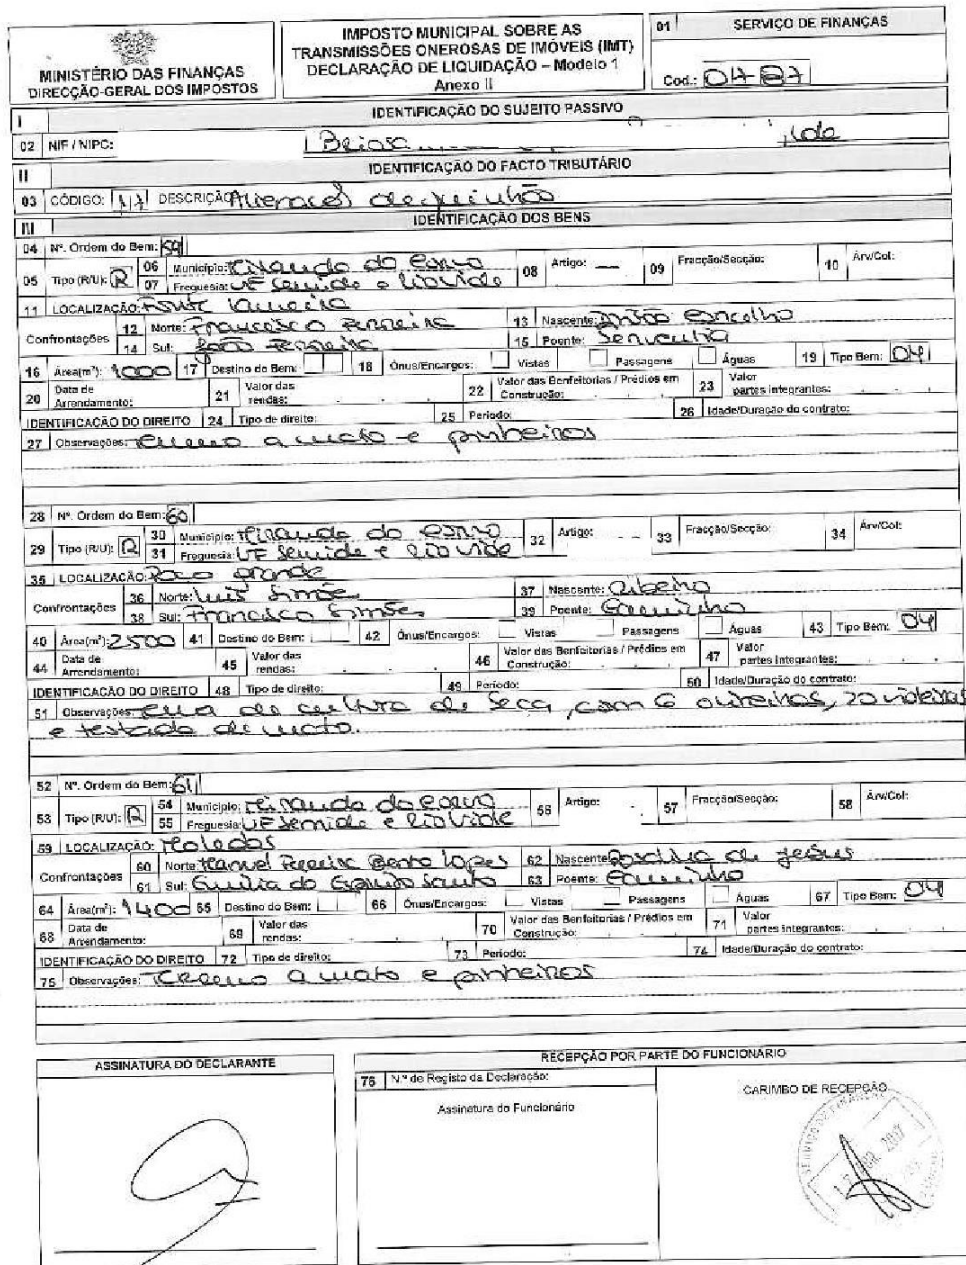 MINISTÉRIO DAS FINANÇAS
DIRECÇÃO-GERAL DOS IMPOSTOS
IMPOSTO MUNICIPAL SOBRE AS
TRANSMISSÕES ONEROSAS DE IMÓVEIS (IMT)
DECLARAÇÃO DE LIQUIDAÇÃO – Modelo 1
Anexo II
01 SERVIÇO DE FINANÇAS
Cod.:
I IDENTIFICAÇÃO DO SUJEITO PASSIVO
02 NIF / NIPC:
II IDENTIFICAÇÃO DO FACTO TRIBUTÁRIO
03 CÓDIGO: DESCRIÇÃO: de quinhão
III IDENTIFICAÇÃO DOS BENS
04 Nº. Ordem do Bem: 59
05 Tipo (R/U): R 06 Município: Miranda do Corvo 08 Artigo: — 09 Fracção/Secção: 10 Arv/Col:
07 Freguesia: UF Semide e Rio Vide
11 LOCALIZAÇÃO: Fonte
Confrontações 12 Norte: Francisco Ferreira 13 Nascente:
14 Sul: João Ferreira 15 Poente:
16 Área(m²): 1000 17 Destino do Bem: 18 Ónus/Encargos: Vistas Passagens Águas 19 Tipo Bem: 04
20 Data de Arrendamento: 21 Valor das rendas: 22 Valor das Benfeitorias / Prédios em Construção: 23 Valor partes integrantes:
IDENTIFICAÇÃO DO DIREITO 24 Tipo de direito: 25 Período: 26 Idade/Duração do contrato:
27 Observações: Terreno a mato e pinheiros
28 Nº. Ordem do Bem: 60
29 Tipo (R/U): R 30 Município: Miranda do Corvo 32 Artigo: 33 Fracção/Secção: 34 Arv/Col:
31 Freguesia: UF Semide e Rio Vide
35 LOCALIZAÇÃO: Poço Grande
Confrontações 36 Norte: Luis Simões 37 Nascente: Ribeiro
38 Sul: Francisco Simões 39 Poente: Caminho
40 Área(m²): 2500 41 Destino do Bem: 42 Ónus/Encargos: Vistas Passagens Águas 43 Tipo Bem: 04
44 Data de Arrendamento: 45 Valor das rendas: 46 Valor das Benfeitorias / Prédios em Construção: 47 Valor partes integrantes:
IDENTIFICAÇÃO DO DIREITO 48 Tipo de direito: 49 Período: 50 Idade/Duração do contrato:
51 Observações: de cultura de seca, com 6 oliveiras, 20 videiras
e testada de mato.
52 Nº. Ordem do Bem: 61
53 Tipo (R/U): R 54 Município: Miranda do Corvo 56 Artigo: 57 Fracção/Secção: 58 Arv/Col:
55 Freguesia: UF Semide e Rio Vide
59 LOCALIZAÇÃO:
Confrontações 60 Norte: Manuel Pereira Bento Lopes 62 Nascente: de Jesus
61 Sul: Emilia do Espirito Santo 63 Poente: Caminho
64 Área(m²): 1400 65 Destino do Bem: 66 Ónus/Encargos: Vistas Passagens Águas 67 Tipo Bem: 04
68 Data de Arrendamento: 69 Valor das rendas: 70 Valor das Benfeitorias / Prédios em Construção: 71 Valor partes integrantes:
IDENTIFICAÇÃO DO DIREITO 72 Tipo de direito: 73 Período: 74 Idade/Duração do contrato:
75 Observações: Terreno a mato e pinheiros
ASSINATURA DO DECLARANTE
RECEPÇÃO POR PARTE DO FUNCIONÁRIO
76 N.º de Registo da Declaração:
Assinatura do Funcionário
CARIMBO DE RECEPÇÃO